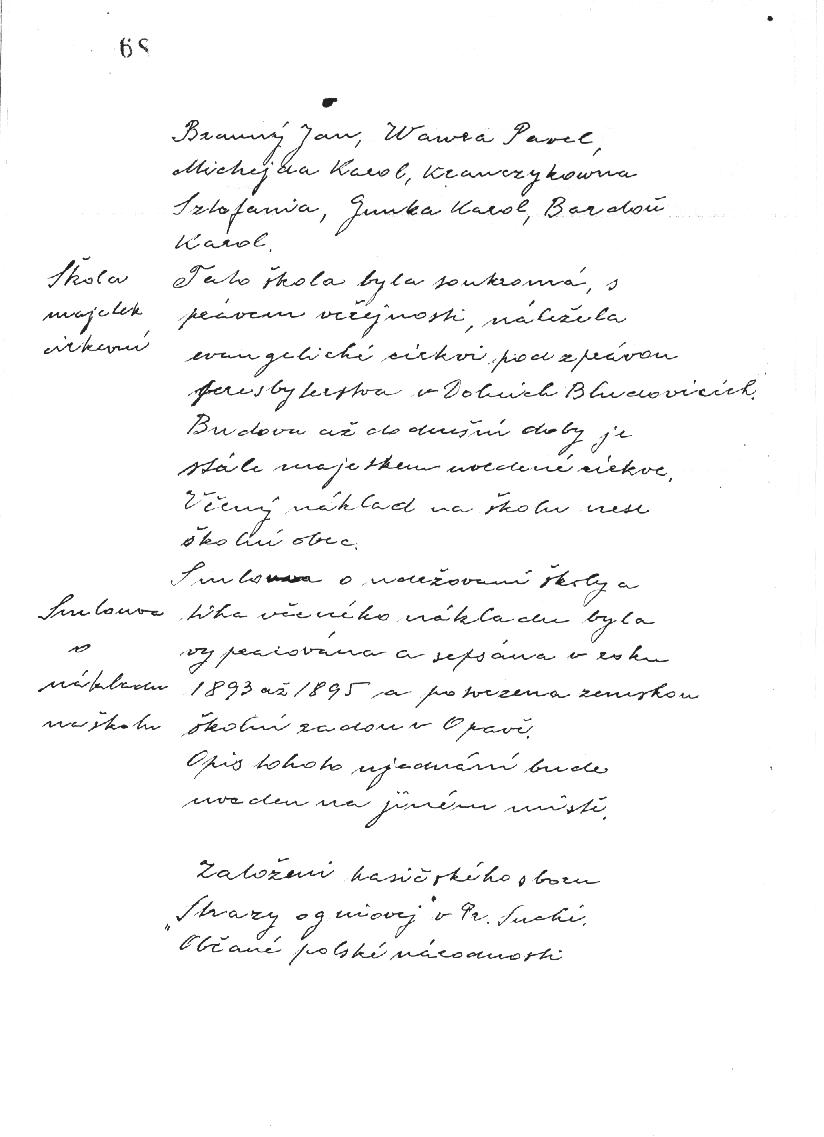 68
Branný Jan, Wawra Pavel,
Michejda Karol, Krawczykowna
Sztefania, Gunka Karol, Bardoň
Karol.
Škola
majetek
církevní
Tato škola byla soukromá, s
právem veřejnosti, náležela
evangelické církvi pod zprávou
presbyterstva v Dolních Bludovicích.
Budova až do dnešní doby je
stále majetkem uvedené církve.
Věcný náklad na školu nese
školní obec.
Smlouva
o
nákladu
na školu
Smlouva o udržovaní školy a
tiha věcného nákladu byla
vypracována a sepsána v roku
1893 až 1895 a potvrzena zemskou
školní radou v Opavě.
Opis tohoto ujednání bude
uveden na jiném místě.
Založení hasičského sboru
„Strazy ogniovej" v Pr. Suché.
Občané polské národnosti